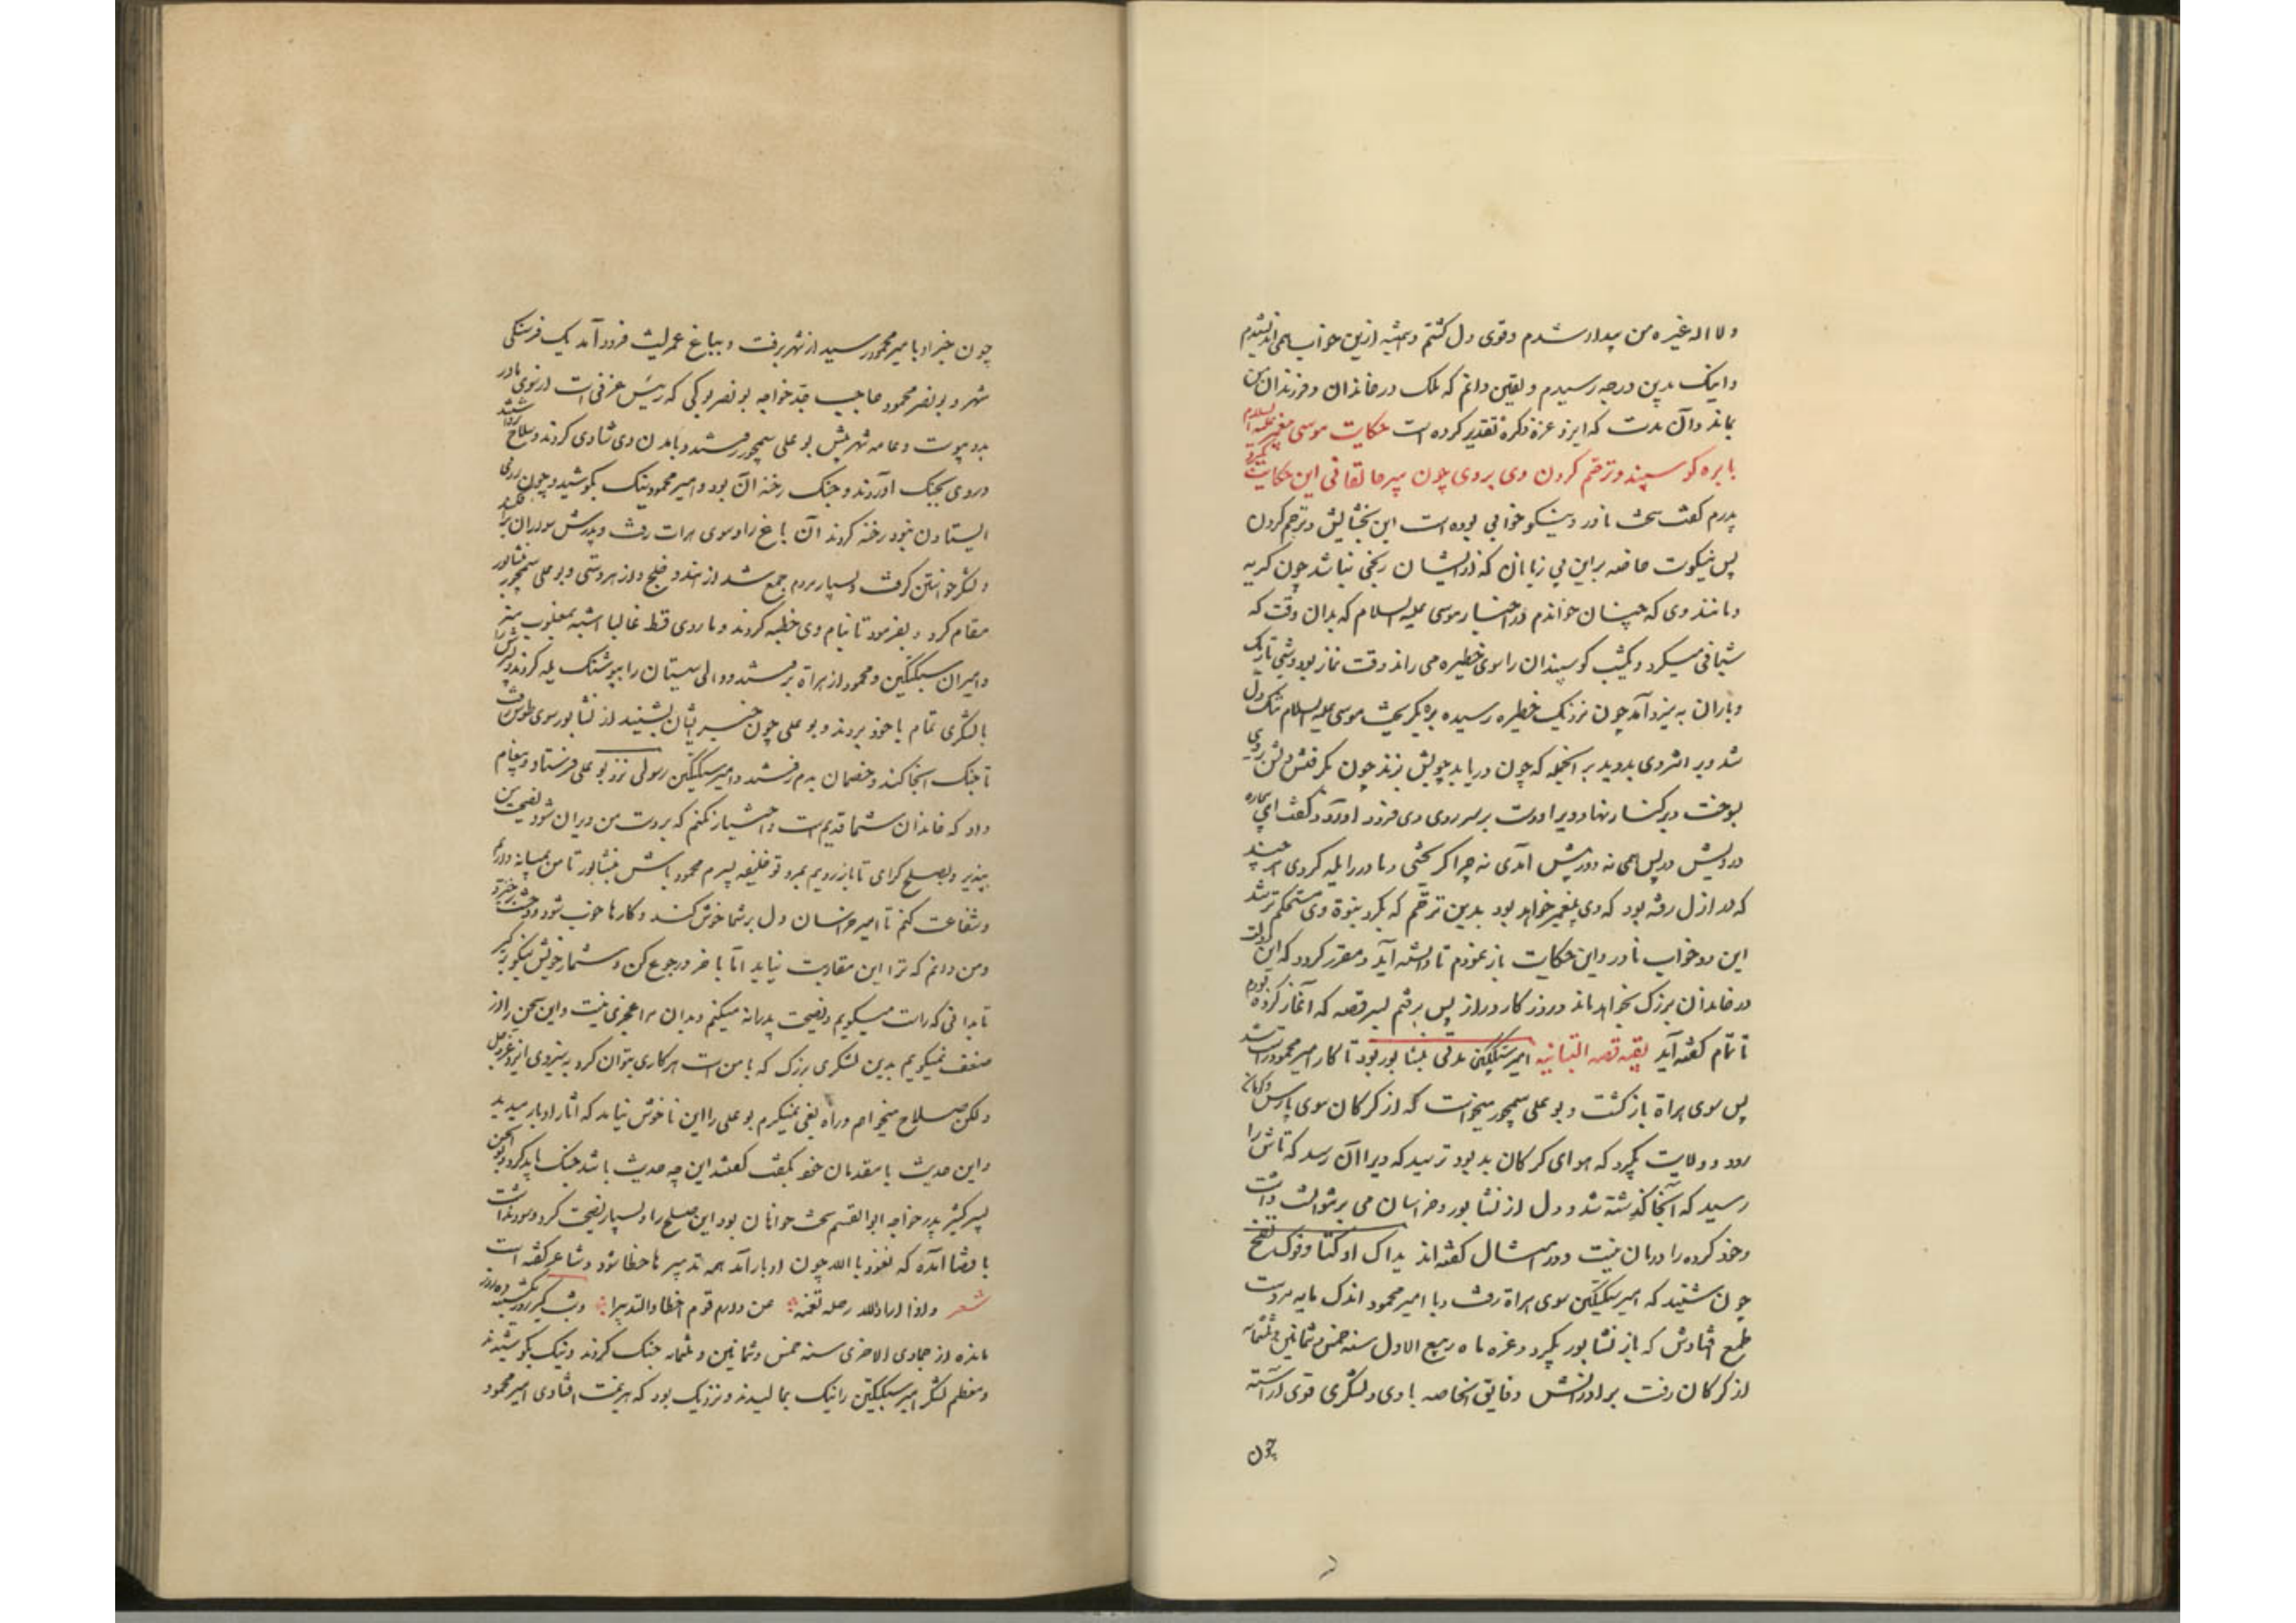 ولا اله غیره من بیدار شدم و قوی دل گشتم و همیشه ازین خواب همی اندیشیدم
و اینک بدین درجه رسیدم و یقین دانم که ملک در خاندان و فرزندان من
بماند و آن مدت که ایزد عز ذکره تقدیر کرده است حکایت موسی پیغمبر علیه السلام
با بره گوسپند و ترحم کردن وی بر وی چون پیر جالقانی این حکایت بکرد
پدرم گفت سخت نادر و نیکو خوابی بوده است این بخشایش و ترحم کردن
پس نیکوست خاصه بر این بی زبانان که از ایشان رنجی نباشد چون گربه
و مانند وی که چنان خواندم در اخبار موسی علیه السلام که بدان وقت که
شبانی میکرد و یکشب گوسپندان را سوی حظیره می راند وقت نماز بود و شبی تاریک
و باران به نیرو آمد چون نزدیک حظیره رسید بره بگریخت موسی علیه السلام تنگ دل
شد و بر اثر وی بدوید بر آنجمله که چون دریابد چوبش بزند چون بگرفتش دلش بر وی
بسوخت و بر کنار نهاد ویرا و دست بر سر وی فرود آورد و گفت ای بیچاره
درویش در پس بیمی نه و در پیش امیدی نه چرا گریختی و مادر را یله کردی هر چند
که در ازل رفته بود که وی پیغمبر خواهد بود بدین ترحم که بکرد نبوة وی مستحکم تر شد
این دو خواب نادر و این حکایت باز نمودم تا دانسته آید و مقرر گردد که این دولت
در خاندان بزرگ بخواهد ماند و روزگار دراز پس برفتم بسر قصه که آغاز کرده بودم
تا تمام گفته آید بقیه قصه التبانیه امیر سبکتگین مدتی بنشابور بود تا کار امیر محمود راست شد
پس سوی هراة باز گشت و بو علی سمجور میخواست که از کرکان سوی پارس و کرمان
رود و ولایت بگیرد که هوای کرکان بد بود ترسید که ویرا آن رسد که تاش را
رسید که آنجا گذشته شد و دل از نشابور و خراسان می برنتوانست داشت
و خود کرده را درمان نیست و در امثال گفته اند یداک اوکتا و فوک نفخ
چون شنید که امیر سبکتگین سوی هراة رفت و با امیر محمود اندک مایه مردست
طمع افتادش که باز نشابور بگیرد و غره ماه ربیع الاول سنه خمس و ثمانین و ثلثمائه
از کرکان رفت برادرانش و فایق الخاصه با وی و لشکری قوی آراسته
چون
چون خبر او با میر محمود رسید از شهر برفت و بباغ عمر لیث فرود آمد یک فرسنگی
شهر و بو نصر محمود حاجب جد خواجه بو نصر نوکی که رئیس غزنی است از سوی مادر
بدو پیوست و عامه شهر پیش بو علی سمجور رفتند و بآمدن وی شادی کردند و سلاح برداشتند
و روی بجنگ آوردند و جنگ رخنه آن بود و امیر محمود نیک بکوشید و چون روی
ایستادن نبود رخنه کردند آن باغ را و سوی هرات رفت و پدرش سواران برافکند
و لشکر خواستن گرفت و بسیار مردم جمع شد از هند و خلج و از هر دستی و بو علی سمجور بنشابور
مقام کرد و بفرمود تا بنام وی خطبه کردند و ما روی قط غالبا اشبه بمغلوب منه
و امیران سبکتگین و محمود از هراة برفتند و والی سیستان را ببوشنگ یله کردند و پسرش را
با لشکری تمام با خود بردند و بو علی چون خبر ایشان بشنید از نشابور سوی طوس رفت
تا جنگ آنجا کند و خصمان بدم رفتند و امیر سبکتگین رسولی نزد بو علی فرستاد و پیغام
داد که خاندان شما قدیم است و اختیار نکنم که بر دست من ویران شود نصیحت من
بپذیر و بصلح گرای تا باز رویم بمرو تو خلیفه پسرم محمود باش بنشابور تا من بمیانه درآیم
و شفاعت کنم تا امیر خراسان دل بر شما خوش کند و کارها خوب شود و وحشت برخیزد
و من دانم که ترا این مقاربت نیاید اما با خرد رجوع کن و شمار خویش نیکو بر گیر
تا بدانی که راست میگویم و نصیحت پدرانه میکنم و بدان مرا عجزی نیست و این سخن را از
ضعف نمیگویم بدین لشکری بزرگ که با من است هر کاری بتوان کرد به نیروی ایزد عز و جل
و لکن صلاح میخواهم و راه بغی نمیگیرم بو علی را این ناخوش نیامد که آثار ادبار میدید
و این حدیث با مقدمان خود بگفت گفتند این چه حدیث باشد جنگ باید کرد بو الحسن
پسر کثیر پدر خواجه ابو القسم سخت خواهان بود این صلح را و بسیار نصیحت کرد و سود نداشت
با قضا آمده که نعوذ با الله چون ادبار آمد همه تدبیرها خطا شود و شاعر گفته است
شعر و اذا اراد الله رحله نعمه من دار قوم اخطاؤا التدبیرا و شبگیر روز یکشنبه ده روز
مانده از جمادی الاخری سنه خمس و ثمانین و ثلثمائه جنگ کردند و نیک بکوشیدند
و معظم لشکر امیر سبکتگین را نیک بمالیدند و نزدیک بود که هزیمت افتادی امیر محمود